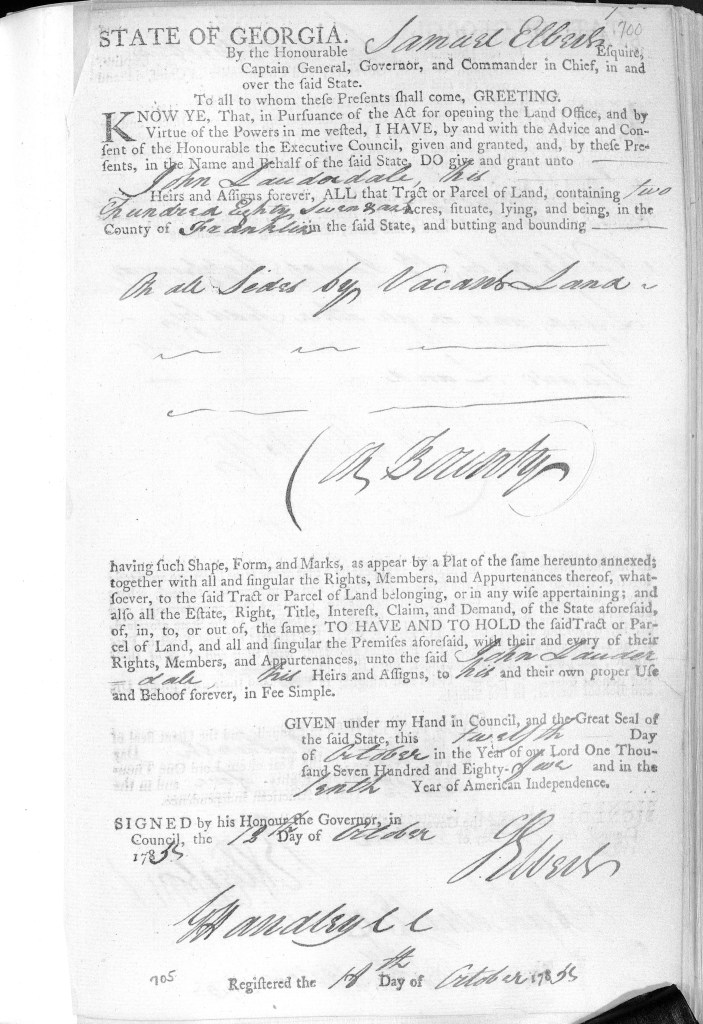 700
STATE OF GEORGIA.
By the Honourable Samuel Elbert Esquire,
Captain General, Governor, and Commander in Chief, in and
over the said State.
To all to whom these Presents shall come, GREETING.
KNOW YE, That, in Pursuance of the Act for opening the Land Office, and by
Virtue of the Powers in me vested, I HAVE, by and with the Advice and Con-
sent of the Honourable the Executive Council, given and granted, and, by these Pre-
sents, in the Name and Behalf of the said State, DO give and grant unto
John Lauderdale, his
Heirs and Assigns forever, ALL that Tract or Parcel of Land, containing two
Hundred Eighty Seven & half Acres, situate, lying, and being, in the
County of Franklin in the said State, and butting and bounding
On all Sides by Vacant Land
(On Bounty)
having such Shape, Form, and Marks, as appear by a Plat of the same hereunto annexed;
together with all and singular the Rights, Members, and Appurtenances thereof, what-
soever, to the said Tract or Parcel of Land belonging, or in any wise appertaining; and
also all the Estate, Right, Title, Interest, Claim, and Demand, of the State aforesaid,
of, in, to, or out of, the same; TO HAVE AND TO HOLD the said Tract or Par-
cel of Land, and all and singular the Premises aforesaid, with their and every of their
Rights, Members, and Appurtenances, unto the said John Lauder
dale, his Heirs and Assigns, to his and their own proper Use
and Behoof forever, in Fee Simple.
GIVEN under my Hand in Council, and the Great Seal of
the said State, this twelfth Day
of October in the Year of our Lord One Thou-
sand Seven Hundred and Eighty-five and in the
tenth Year of American Independence.
SIGNED by his Honour the Governor, in
Council, the 12th Day of October
1785
S Elbert
G Handley C C
705 Registered the 18th Day of October 1785